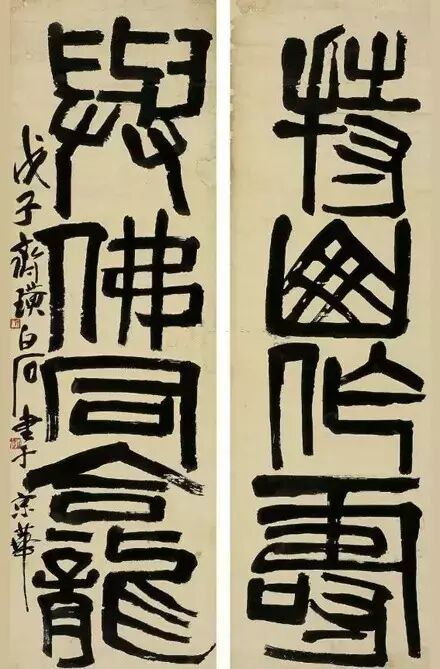 持山作壽
與佛同龕
戊子齊璜白石書于京華